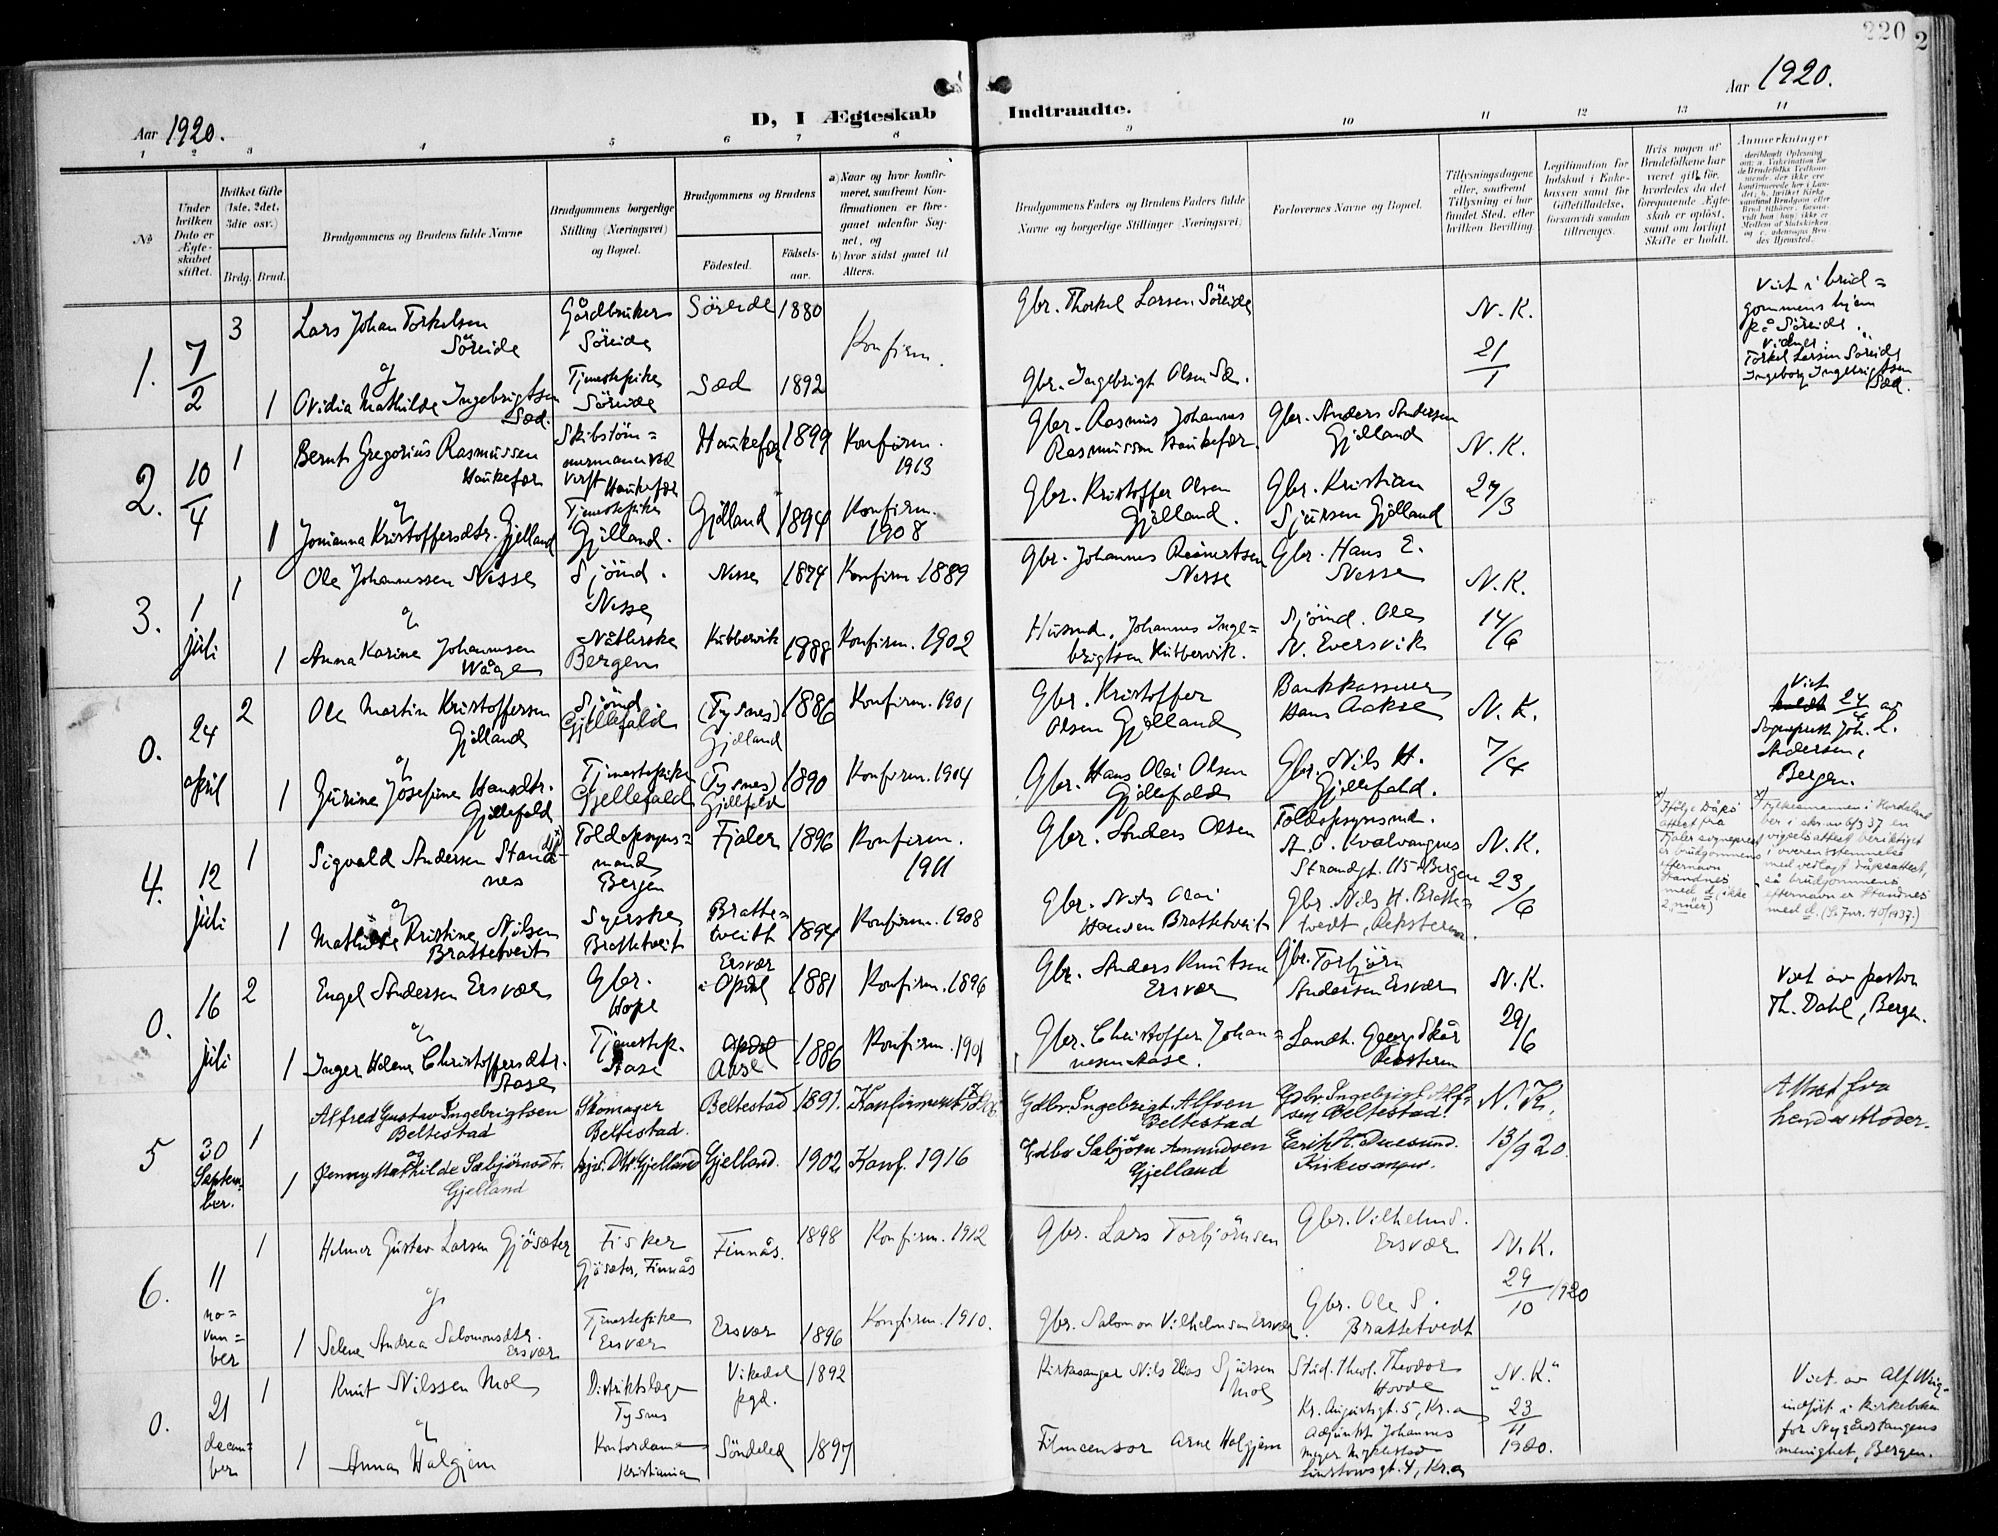 220
Aar 1920.
D, I Ægteskab Indtraadte.
Aar 1920.
1 2 3 4 5 6 7 8 9 10 11 12 13 14
No
Under hvilken Dato er Ægteskabet stiftet.
Hvilket Gifte (1ste, 2det, 3die osv.)
Brdg. Brud.
Brudgommens og Brudens fulde Navne
Brudgommens borgerlige Stilling (Næringsvei) og Bopæl.
Brudgommens og Brudens
Födested. Födselsaar.
a) Naar og hvor konfirmeret, saafremt Konfirmationen er foregaaet udenför Sognet, og
b) hvor sidst gaaet til Alters.
Brudgommens Faders og Brudens Faders fulde Navne og borgerlige Stillinger (Næringsvei)
Forlovernes Navne og Bopæl.
Tillysningsdagene eller, saafremt Tillysning ei har fundet Sted, efter hvilken Bevilling
Legitimation for Indskud i Enkekassen samt for Giftetilladelse, forsaavidt saadan tiltrænges.
Hvis nogen af Brudefolkene har været gift för, hvorledes da det foregaaende Ægteskab er oplöst, samt om lovligt Skifte er holdt.
Anmerkninger
1. 7/2 3 Lars Johan Torkelsen Söreide
Gårdbruker Söreide
Söreide 1880
Konfirm.
Gbr. Thorkel Larsen Söreide
N.K. 21/1
Viet i brudgommens hjem på Söreide.
Vidner: Torkel Larsen Söreide
Ingeborg Ingebrigtsen Sæd.
og
1 Ovidia Mathilde Ingebrigtsen Sæd.
Tjenestepike Söreide
Sæd 1892
Gbr. Ingebrigt Olsen Sæ.
2. 10/4 1 Bernt Gregorius Rasmussen Haukefær
Haukefær 1899
Konfirm. 1913
Gbr. Rasmus Johannes Rasmussen Haukefær.
Gbr. Anders Andersen Gjelland
N.K. 27/3
og
1 Jonianna Kristoffersdtr. Gjelland
Tjenestepike Gjelland.
Gjelland 1894
Konfirm. 1908
Gbr. Kristoffer Olsen Gjelland.
Gbr. Kristian Sjursen Gjelland
3. 1 juli 1 Ole Johannessen Nesse
Sjömd. Nesse
Nesse 1874
Konfirm 1889
Gbr. Johannes Reinertsen Nesse
Gbr. Hans E. Nesse
N.K. 14/6
og
1 Anna Karine Johannsen Wåge
Nåtlerske Bergen
Kubbervik 1888
Konfirm. 1902
Husmd. Johannes Ingebrigtsen Kubbervik.
Sjömd. Ole N. Eversvik
0. 24 april 2 Ole Martin Kristoffersen Gjelland
Sjömd. Gjellefald
(Tysnes) Gjelland 1886
Konfirm. 1901
Gbr. Kristoffer Olsen Gjelland
Bankkasserer Hans Aakre
N.K. 7/4
Viet 24/4 av Sogneprest Joh. L. Andersen, Bergen.
og
1 Gurine Josefine Hansdtr. Gjellefald
Tjenestepike Gjellefald
(Tysnes) Gjellefald 1890
Konfirm. 1904
Gbr. Hans Olai Olsen Gjellefald
Gbr. Nils H. Gjellefald.
4. 12 juli 1 Sigvald Andersen Standnes
Toldopsynsmand Bergen
Fjaler 1896
Konfirm. 1911
Gbr. Anders Olsen
Toldopsynsmd. A.O. Kvalvangnes Strandgt. 115 Bergen
N.K. 23/6
x) Ifölge dåpsattest fra Fjaler sogneprest er brudgommens etternavn Standnes med d (ikke 2 n'er)
x) Fylkesmannen i Hordaland ber i skr. av 6/3 37 en vigselsattest beriktiget i overensstemmelse med vedlagt dåpsattest, så brudgommens efternavn er Standnes med d. (Se Jnr. 40/1937.)
og
1 Mathilde Kristine Nilsen Brattetveit
Syerske Brattetveit
Brattetveitt 1894
Konfirm. 1908
Gbr. Nils Olai Hansen Brattetveit
Gbr. Nils H. Brattetvedt, Reksteren.
0. 16 juli 2 Engel Andersen Ersvær
Gbr. Hope
Ersvær i Opdal 1881
Konfirm. 1896
Gbr. Anders Knutsen Ersvær
Gbr. Torbjörn Andersen Ersvær
N.K. 29/6
Viet av pastor Th. Dahl, Bergen.
og
1 Inger Helene Christoffersdtr. Aase
Tjenestep. Aase
Opdal Aase 1886
Konfirm. 1901
Gbr. Christoffer Johannesen Aase.
Landh. Georg Skår Reksteren
5 30 September. 1 Alfred Gustav Ingebrigtsen Beltestad
Skomager Beltestad.
Beltestad 1891.
Gdbr. Ingebrigt Alfsen Beltestad
Gdbr. Ingebrigt Alfsen Beltestad
N.K. 13/9 20.
Attest fra hendes Moder.
og
1 Jenny Mathilde Sæbjörnsdtr. Gjelland
Gjelland. 1902
Konf. 1916
Gdbr Sæbjörn Amundsen Gjelland
Erik H. Duesund. Kirkesanger.
6. 11 november 1 Helmer Gustav Larsen Gjösæter
Fisker Gjösæter, Finnås
Finnås. 1898
Konfirm. 1912
Gbr. Lars Torbjörnsen
Gbr. Vilhelm S. Ersvær
N.K. 29/10 1920
og
1 Selene Andrea Salomonsdtr. Ersvær
Tjenestepike Ersvær
Ersvær 1896
Konfirm. 1910.
Gbr. Salomon Vilhelmsen Ersvær.
Gbr. Ole S. Brattetvedt
0. 21 december 1 Knut Nilssen Moe
Distriktslæge Tysnes
Vikedal pgd. 1892
Kirkesanger Nils Elias Sjursen Moe
Stud. theol. Theodor Hovde Kr. Augustsgt. 5, Kr.a
"N.K." 23/11 1920.
Viet av Alf Wiig indfört i kirkeboken for Nygårdstangens menighet, Bergen.
og
1 Anna Halgjem
Kontordame Kristiania
Söndeled 1897
Filmcensor Arne Halgjem
Adjunkt Johannes Meyer Myklestad Linstowsgt. 4, Kr.a